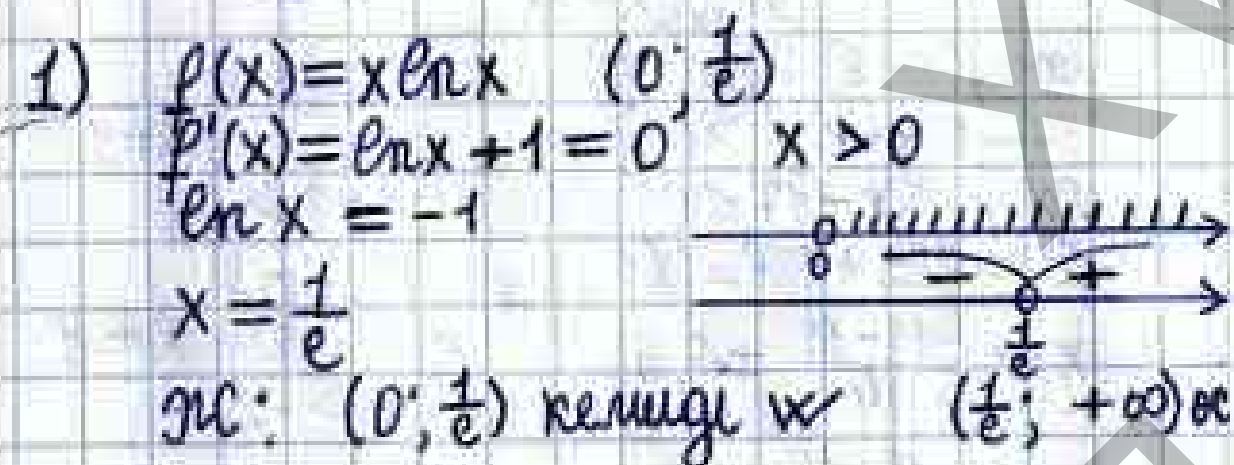 1) f(x)=x ln x (0; 1/e)
f'(x)=ln x +1=0 x >0
ln x = -1
x = 1/e
0
- +
1/e
ж: (0; 1/e) кемиди w (1/e; +∞) өс